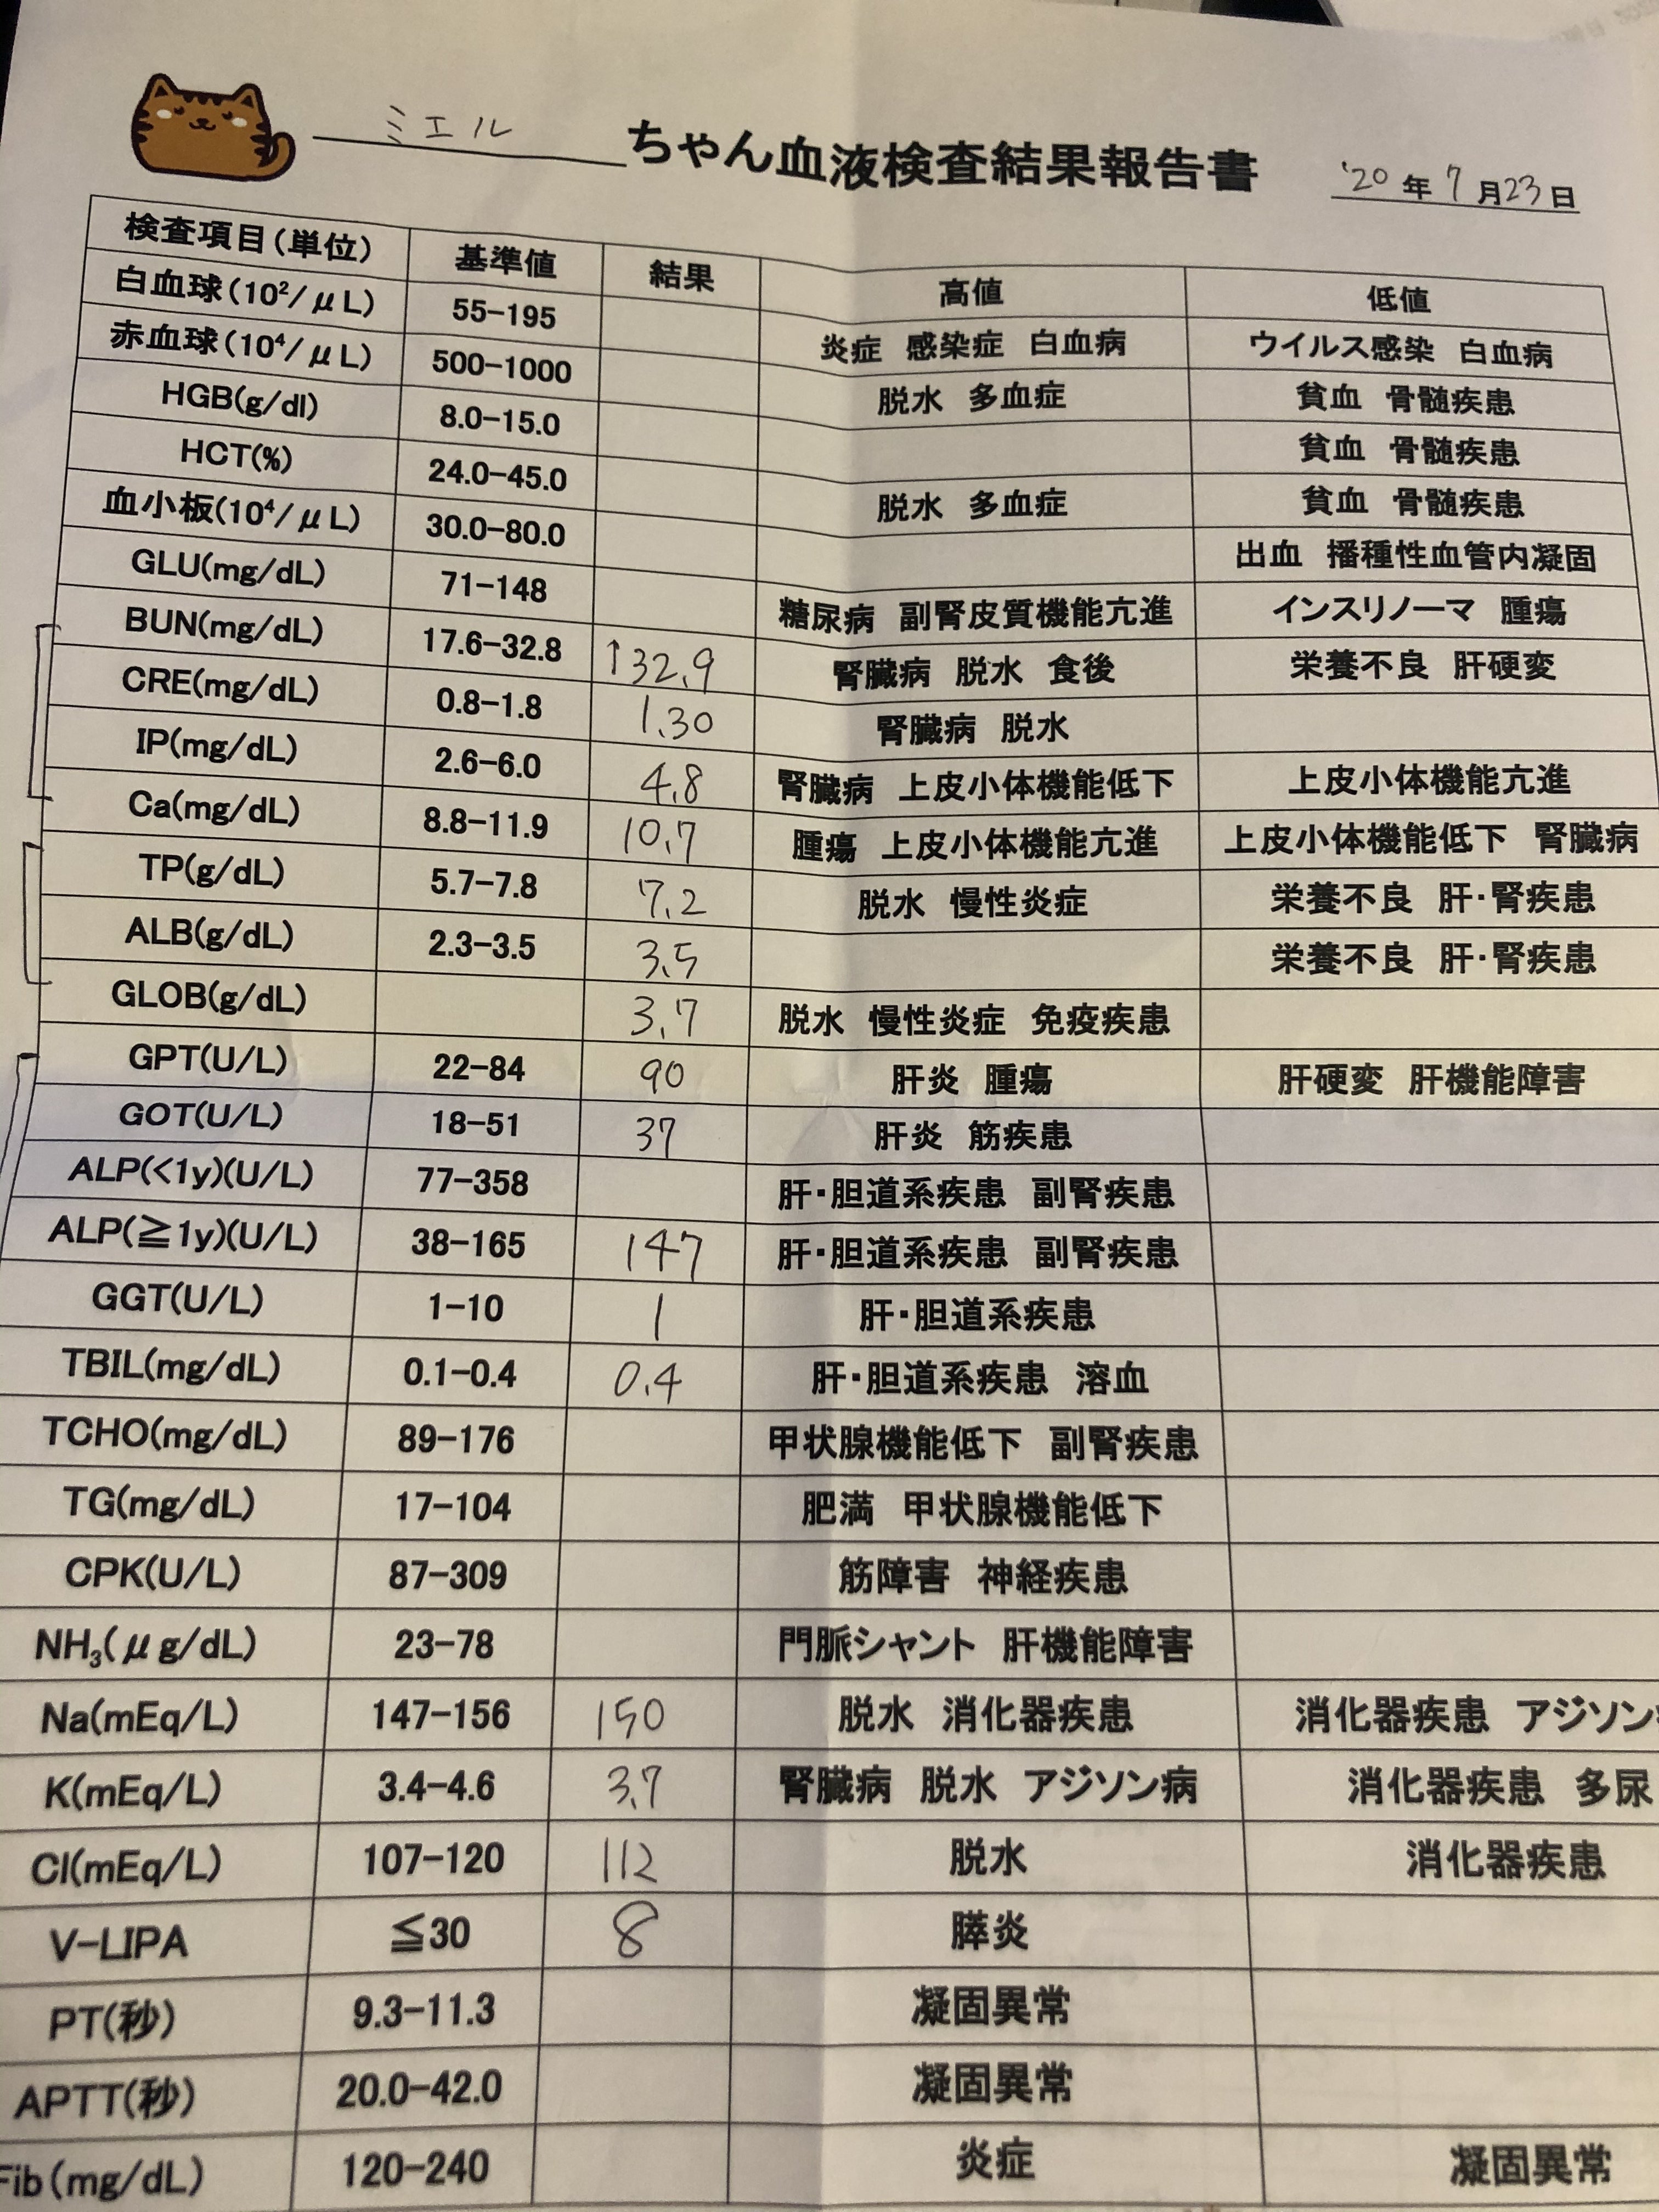 ミエル ちゃん血液検査結果報告書 '20年7月23日
検査項目(単位) 基準値 結果 高値 低値
白血球(10²/μL) 55-195 炎症 感染症 白血病 ウイルス感染 白血病
赤血球(10⁴/μL) 500-1000 脱水 多血症 貧血 骨髄疾患
HGB(g/dl) 8.0-15.0 貧血 骨髄疾患
HCT(%) 24.0-45.0 脱水 多血症 貧血 骨髄疾患
血小板(10⁴/μL) 30.0-80.0 出血 播種性血管内凝固
GLU(mg/dL) 71-148 糖尿病 副腎皮質機能亢進 インスリノーマ 腫瘍
BUN(mg/dL) 17.6-32.8 ↑32.9 腎臓病 脱水 食後 栄養不良 肝硬変
CRE(mg/dL) 0.8-1.8 1.30 腎臓病 脱水
IP(mg/dL) 2.6-6.0 4.8 腎臓病 上皮小体機能低下 上皮小体機能亢進
Ca(mg/dL) 8.8-11.9 10.7 腫瘍 上皮小体機能亢進 上皮小体機能低下 腎臓病
TP(g/dL) 5.7-7.8 7.2 脱水 慢性炎症 栄養不良 肝・腎疾患
ALB(g/dL) 2.3-3.5 3.5 栄養不良 肝・腎疾患
GLOB(g/dL) 3.7 脱水 慢性炎症 免疫疾患
GPT(U/L) 22-84 90 肝炎 腫瘍 肝硬変 肝機能障害
GOT(U/L) 18-51 37 肝炎 筋疾患
ALP(<1y)(U/L) 77-358 肝・胆道系疾患 副腎疾患
ALP(≧1y)(U/L) 38-165 147 肝・胆道系疾患 副腎疾患
GGT(U/L) 1-10 1 肝・胆道系疾患
TBIL(mg/dL) 0.1-0.4 0.4 肝・胆道系疾患 溶血
TCHO(mg/dL) 89-176 甲状腺機能低下 副腎疾患
TG(mg/dL) 17-104 肥満 甲状腺機能低下
CPK(U/L) 87-309 筋障害 神経疾患
NH₃(μg/dL) 23-78 門脈シャント 肝機能障害
Na(mEq/L) 147-156 150 脱水 消化器疾患 消化器疾患 アジソン
K(mEq/L) 3.4-4.6 3.7 腎臓病 脱水 アジソン病 消化器疾患 多尿
Cl(mEq/L) 107-120 112 脱水 消化器疾患
V-LIPA ≦30 8 膵炎
PT(秒) 9.3-11.3 凝固異常
APTT(秒) 20.0-42.0 凝固異常
Fib(mg/dL) 120-240 炎症 凝固異常